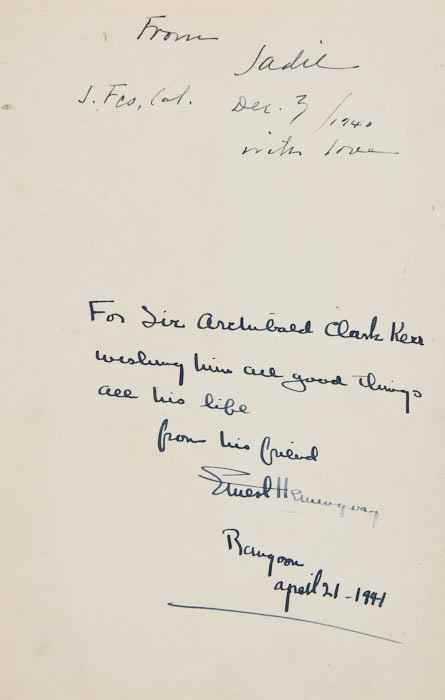 From
Sadie
S. Fco, Cal. Dec. 3/1940
with love
For Sir Archibald Clark Kerr
wishing him all good things
all his life
from his friend
Ernest Hemingway
Rangoon
april 21 - 1941